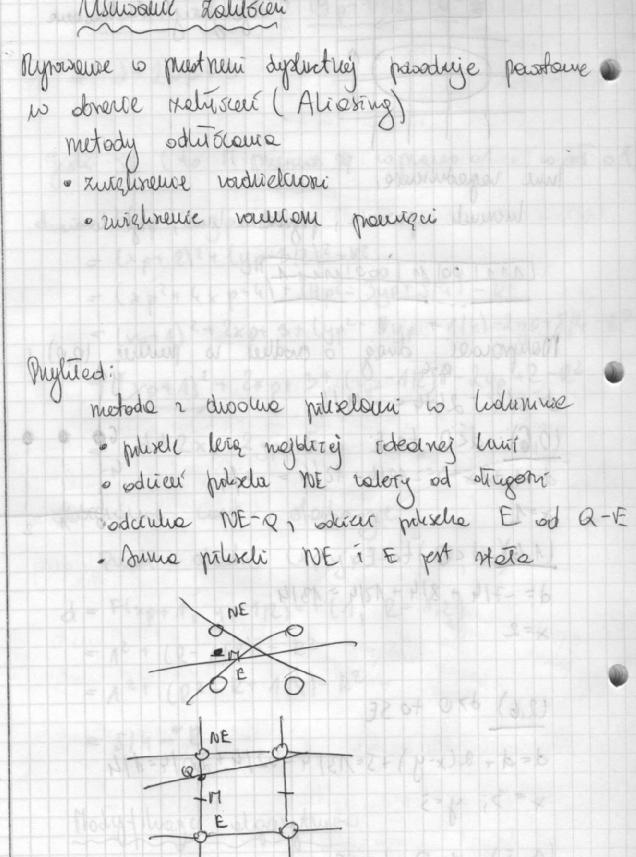 Usuwanie zakłóceń
Rysowanie w przestrzeni dyskretnej powoduje powstanie
w obrazie zakłóceń (Aliasing)
metody odkłócania
• zwiększenie rozdzielczości
• zwiększenie rozmiaru pamięci
Przykład:
metoda z dwoma pikselami w kolumnie
• piksele leżą najbliżej idealnej linii
• odcień piksela NE zależy od długości
odcinka NE-Q, odcień piksela E od Q-E
• Suma pikseli NE i E jest stała
NE
M
E
NE
Q
M
E